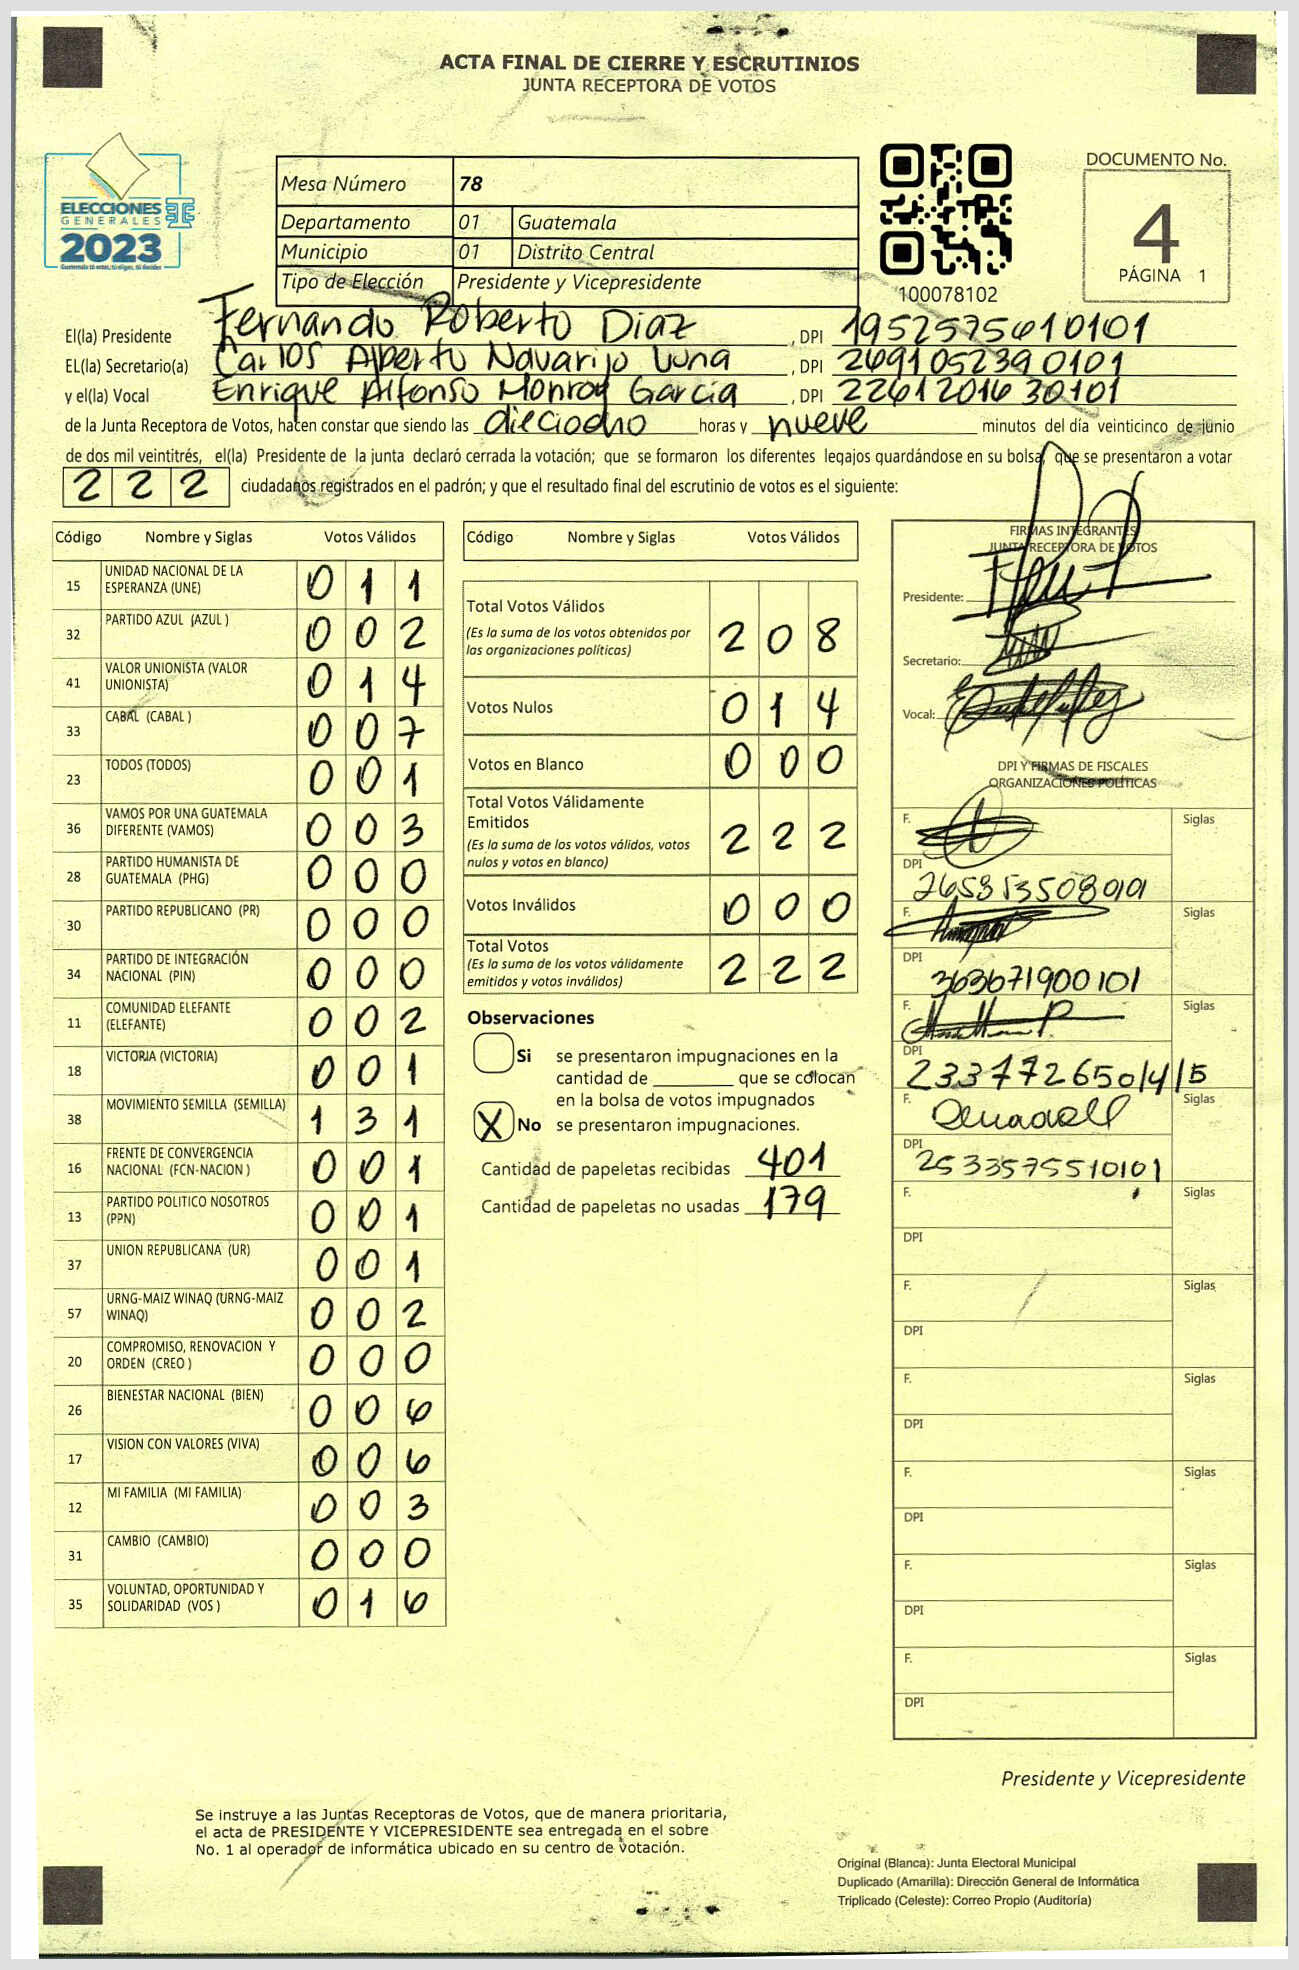 ACTA FINAL DE CIERRE Y ESCRUTINIOS
JUNTA RECEPTORA DE VOTOS
ELECCIONES
GENERALES
2023
Guatemala tú votas, tú eliges, tú decides
Mesa Número 78
Departamento 01 Guatemala
Municipio 01 Distrito Central
Tipo de Elección Presidente y Vicepresidente
100078102
DOCUMENTO No.
4
PÁGINA 1
El(la) Presidente Fernando Roberto Diaz, DPI 1952575610101
EL(la) Secretario(a) Carlos Alberto Navarijo Luna, DPI 2691052390101
y el(la) Vocal Enrique Alfonso Monroy García, DPI 2261201630101
de la Junta Receptora de Votos, hacen constar que siendo las dieciocho horas y nueve minutos del día veinticinco de junio
de dos mil veintitrés, el(la) Presidente de la junta declaró cerrada la votación; que se formaron los diferentes legajos guardándose en su bolsa, que se presentaron a votar
222 ciudadanos registrados en el padrón; y que el resultado final del escrutinio de votos es el siguiente:
Código Nombre y Siglas Votos Válidos
15 UNIDAD NACIONAL DE LA ESPERANZA (UNE) 0 1 1
32 PARTIDO AZUL (AZUL ) 0 0 2
41 VALOR UNIONISTA (VALOR UNIONISTA) 0 1 4
33 CABAL (CABAL ) 0 0 7
23 TODOS (TODOS) 0 0 1
36 VAMOS POR UNA GUATEMALA DIFERENTE (VAMOS) 0 0 3
28 PARTIDO HUMANISTA DE GUATEMALA (PHG) 0 0 0
30 PARTIDO REPUBLICANO (PR) 0 0 0
34 PARTIDO DE INTEGRACIÓN NACIONAL (PIN) 0 0 0
11 COMUNIDAD ELEFANTE (ELEFANTE) 0 0 2
18 VICTORIA (VICTORIA) 0 0 1
38 MOVIMIENTO SEMILLA (SEMILLA) 1 3 1
16 FRENTE DE CONVERGENCIA NACIONAL (FCN-NACION ) 0 0 1
13 PARTIDO POLITICO NOSOTROS (PPN) 0 0 1
37 UNION REPUBLICANA (UR) 0 0 1
57 URNG-MAIZ WINAQ (URNG-MAIZ WINAQ) 0 0 2
20 COMPROMISO, RENOVACION Y ORDEN (CREO ) 0 0 0
26 BIENESTAR NACIONAL (BIEN) 0 0 6
17 VISION CON VALORES (VIVA) 0 0 6
12 MI FAMILIA (MI FAMILIA) 0 0 3
31 CAMBIO (CAMBIO) 0 0 0
35 VOLUNTAD, OPORTUNIDAD Y SOLIDARIDAD (VOS ) 0 1 6
Código Nombre y Siglas Votos Válidos
Total Votos Válidos 2 0 8
(Es la suma de los votos obtenidos por
las organizaciones políticas)
Votos Nulos 0 1 4
Votos en Blanco 0 0 0
Total Votos Válidamente
Emitidos 2 2 2
(Es la suma de los votos válidos, votos
nulos y votos en blanco)
Votos Inválidos 0 0 0
Total Votos 2 2 2
(Es la suma de los votos válidamente
emitidos y votos inválidos)
Observaciones
Si se presentaron impugnaciones en la
cantidad de ________ que se colocan
en la bolsa de votos impugnados
X No se presentaron impugnaciones.
Cantidad de papeletas recibidas 401
Cantidad de papeletas no usadas 179
FIRMAS INTEGRANTES
JUNTA RECEPTORA DE VOTOS
Presidente:
Secretario:
Vocal:
DPI Y FIRMAS DE FISCALES
ORGANIZACIONES POLÍTICAS
F. Siglas
DPI 2658535080101
F. Siglas
DPI 363671900101
F. Siglas
DPI
F. Siglas
DPI 2533575510101
F. Siglas
DPI
F. Siglas
DPI
F. Siglas
DPI
F. Siglas
DPI
F. Siglas
DPI
F. Siglas
DPI
Presidente y Vicepresidente
Se instruye a las Juntas Receptoras de Votos, que de manera prioritaria,
el acta de PRESIDENTE Y VICEPRESIDENTE sea entregada en el sobre
No. 1 al operador de informática ubicado en su centro de votación.
Original (Blanca): Junta Electoral Municipal
Duplicado (Amarilla): Dirección General de Informática
Triplicado (Celeste): Correo Propio (Auditoría)